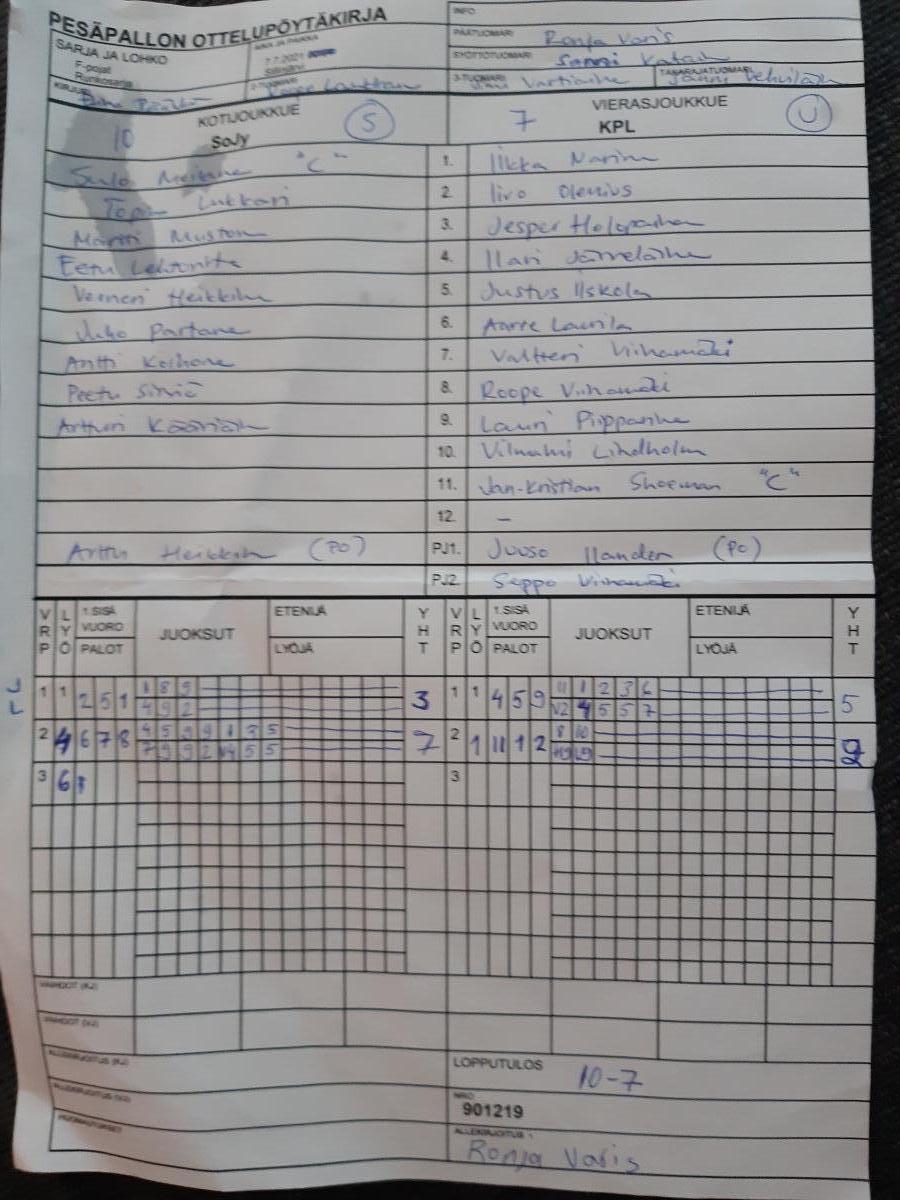 PESÄPALLON OTTELUPÖYTÄKIRJA
INFO
SARJA JA LOHKO
AIKA JA PAIKKA
PÄÄTUOMARI Ronja Varis
F-pojat
7.7.2021
SYÖTTÖTUOMARI Sanni
Runkosarja
KIRJURI
2-TUOMARI
3-TUOMARI
TAKARAJATUOMARI
KOTIJOUKKUE S
VIERASJOUKKUE U
10 SoJy
7 KPL
"C" 1. Iikka
Lukkari 2 Iivo Olenius
Martti Muston 3. Jesper Holopainen
Eetu 4. Ilari
Verneri Heikkin 5. Justus
Juho Partane 6. Aarre Laurila
Antti 7. Valtteri Viihamäki
Peetu 8. Roope Viihamäki
Artturi 9. Lauri Piipparine
10. Lindholm
11. Jan-Kristian Shoeman "C"
12. –
Arttu Heikkin (PO) PJ1. Juuso Ilander (PO)
PJ2. Seppo Viihamäki
VRP LYÖ 1.SISÄ VUORO PALOT JUOKSUT ETENIJÄ LYÖJÄ YHT VRP LYÖ 1.SISÄ VUORO PALOT JUOKSUT ETENIJÄ LYÖJÄ YHT
1 1 2 5 1 1 8 9 3 1 1 4 5 9 11 1 2 3 6 5
4 9 2 4 5 5 7
2 4 6 7 8 4 5 9 9 1 3 5 7 2 1 11 1 2 8 10 2
7 9 9 2 5 5
3 6 3
VAIHDOT (KJ)
VAIHDOT (VJ)
ALLEKIRJOITUS (KJ)
LOPPUTULOS 10-7
ALLEKIRJOITUS (VJ)
NRO
901219
HUOMAUTUKSET
ALLEKIRJOITUS
Ronja Varis